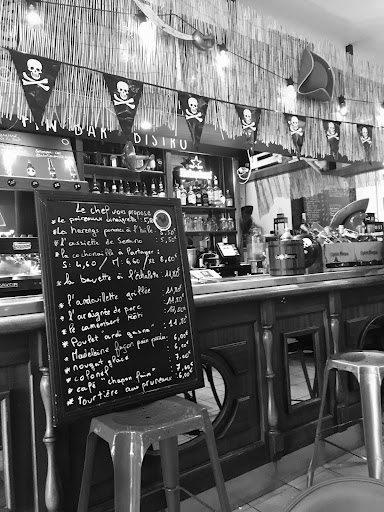 BAR BISTRO
Le chef vous propose
* Le poireaux vinaigrette 5,00
* Le hareng pomme à l'huile 5,50
* L'assiette de Serrano 5,50
* La cochonaille à Partager
S: 4,60 / M: 6,60 / XL: 8,60
* La bavette à l'échalote 11,90
* l'andouillette grillée 11,80
* l'araignée de porc
* le camembert Rôti
* Poulet
* Madeleine façon pain perdu 6,00
* nougat glacé 7,00
* colonel 7,00
* café "chapon fin"
* tourtière aux pruneaux 6,00